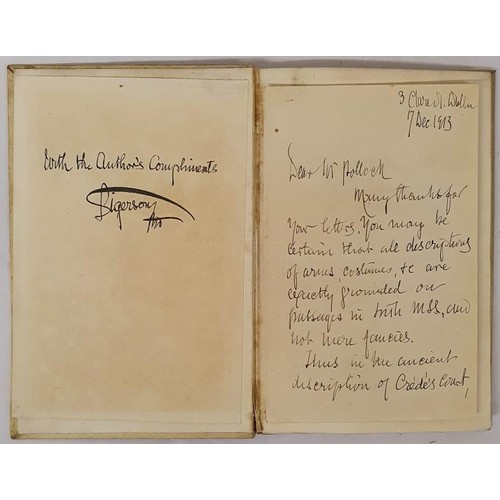 With the Author's Compliments
Sigerson
3 Clare St. Dublin
7 Dec. 1913
Dear Mr Pollock
Many thanks for
your letters. You may be
certain that all descriptions
of arms, costumes, &c are
exactly grounded on
passages in Irish MSS, and
not mere fancies.
Thus in the ancient
description of Crédé's Court,